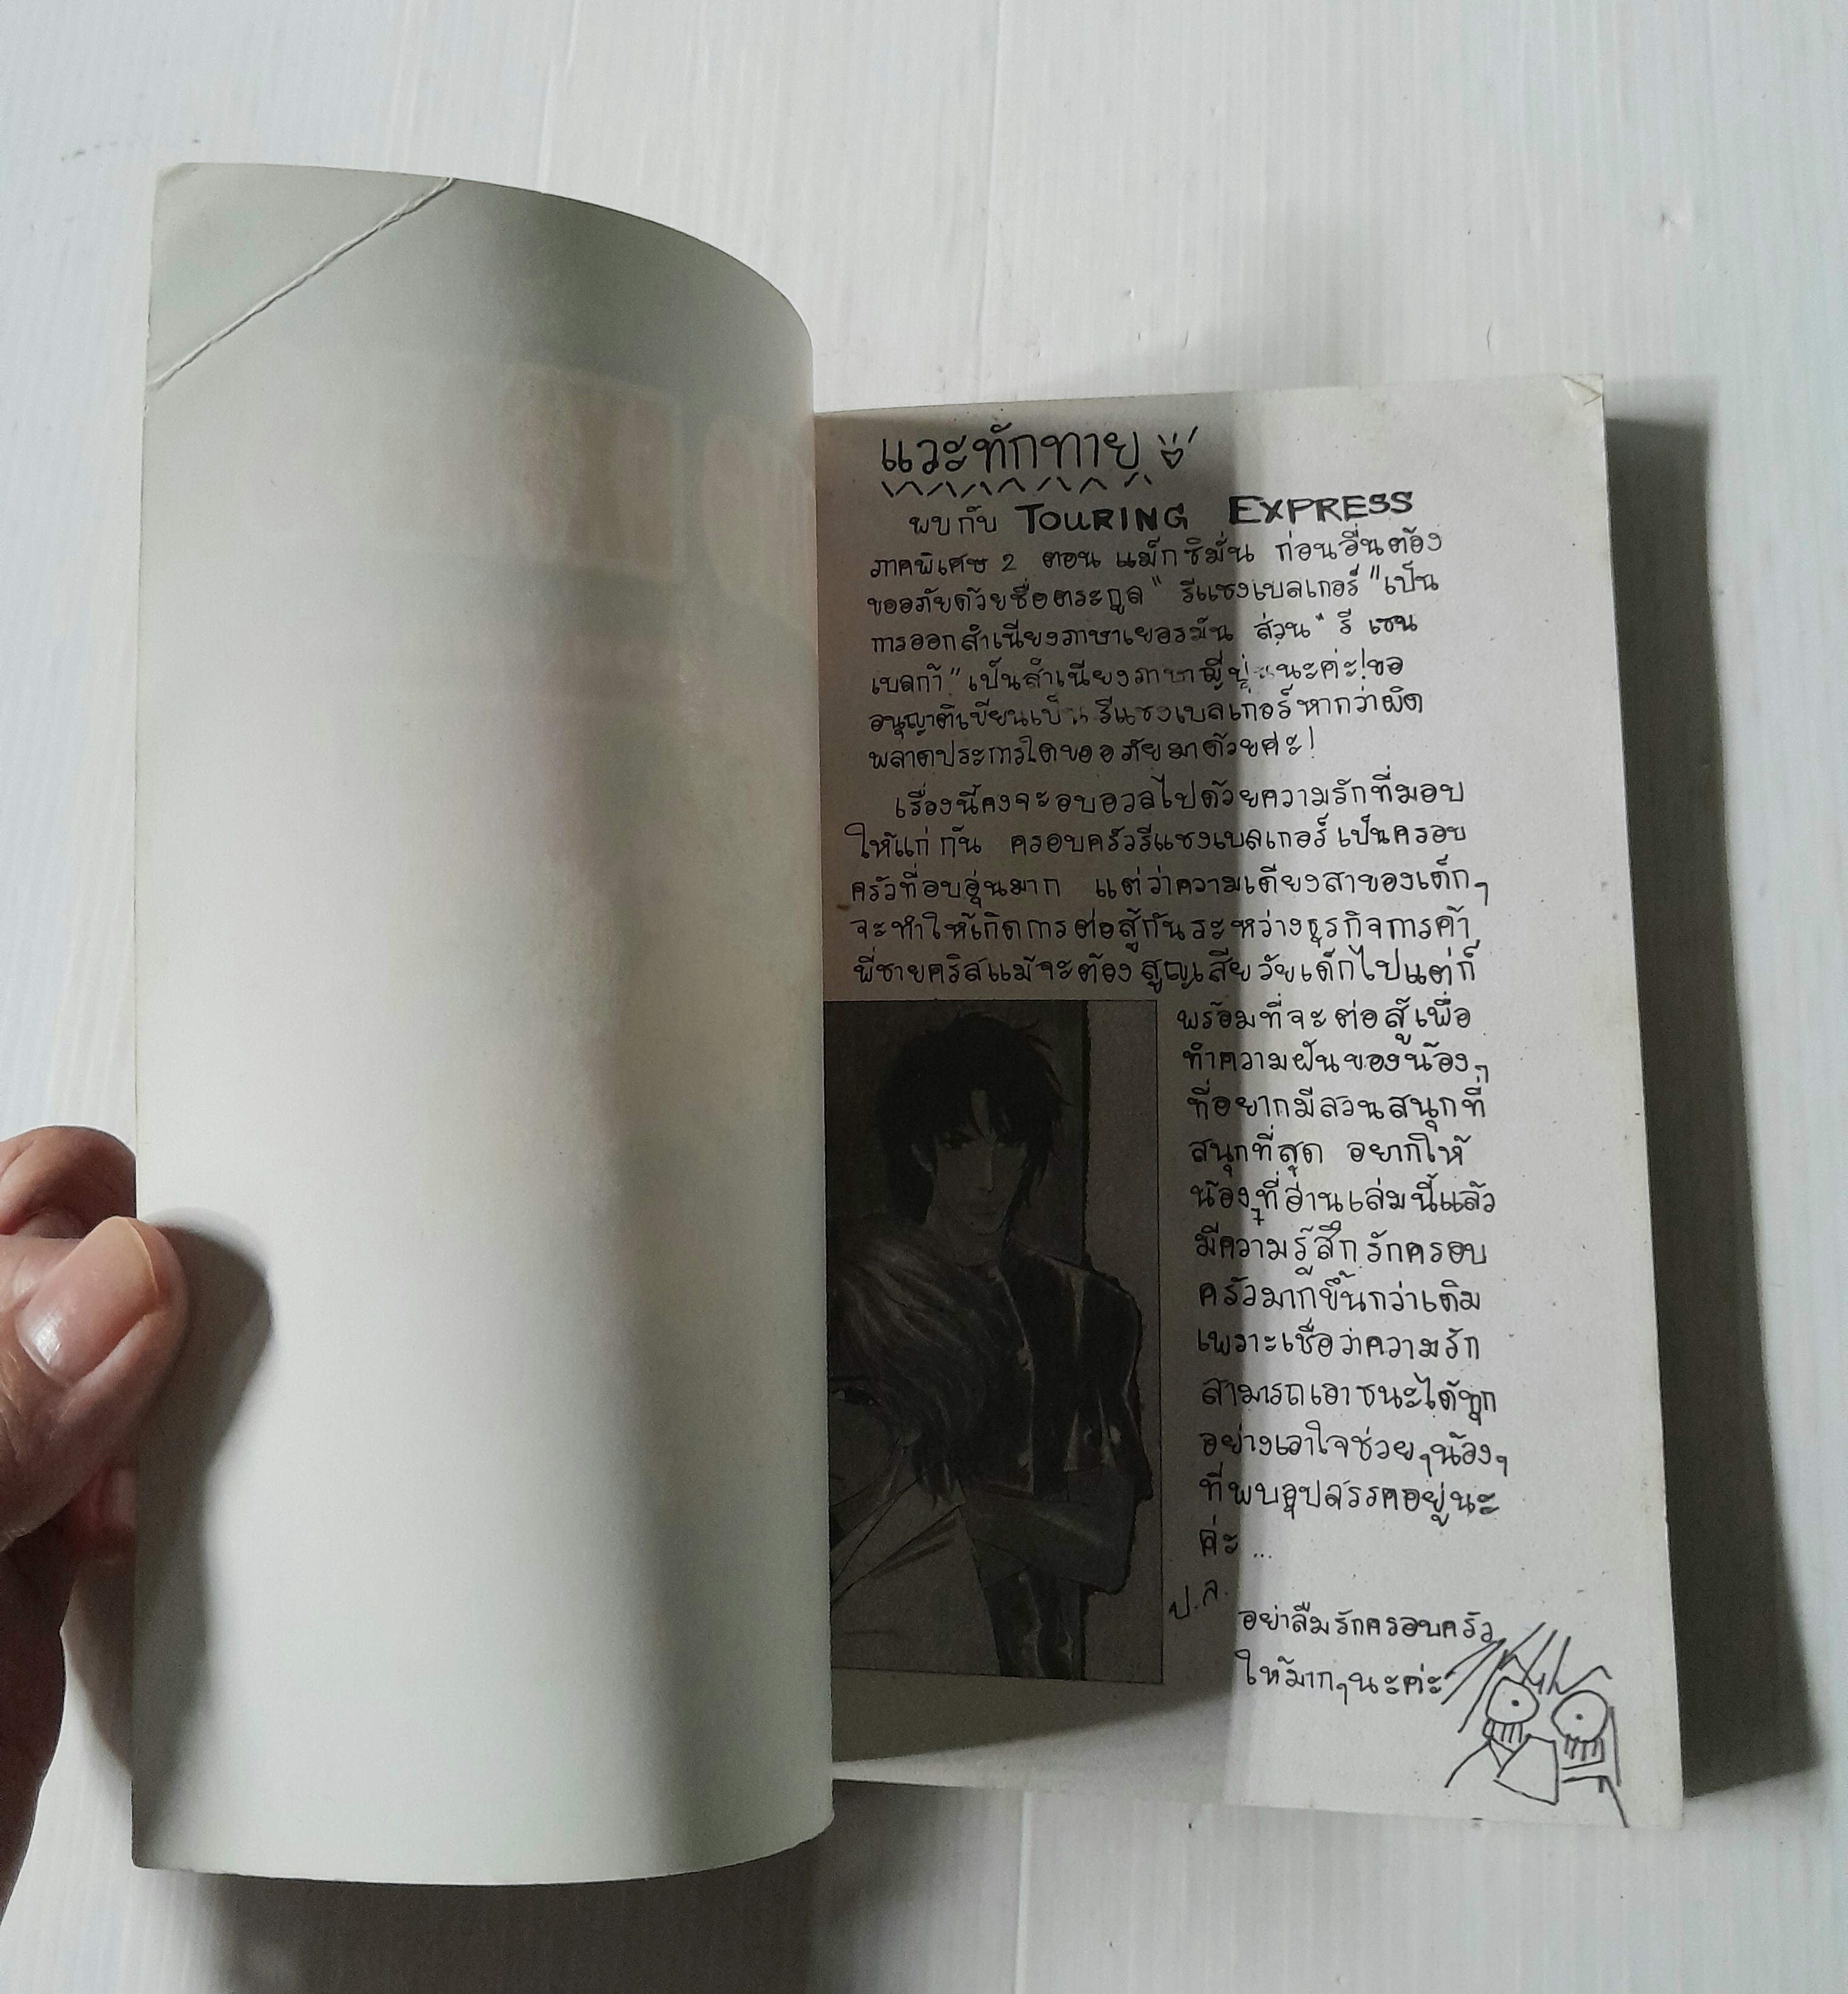 แวะทักทาย
พบกับ TOURING EXPRESS
ภาคพิเศษ 2 ตอน แม็กซิมั่น ก่อนอื่นต้อง
ขออภัยด้วยชื่อตระกูล "รีแชงเบลเกอร์" เป็น
การออกสำเนียงภาษาเยอรมัน ส่วน "รี เชน
เบลก้า" เป็นสำเนียงภาษาญี่ปุ่นนะค่ะ! ขอ
อนุญาติเขียนเป็น รีแชงเบลเก่อร์ หากว่าผิด
พลาดประการใดขออภัยมาด้วยค่ะ!
เรื่องนี้คงจะอบอวลไปด้วยความรักที่มอบ
ให้แก่กัน ครอบครัวรีแชงเบลเกอร์ เป็นครอบ
ครัวที่อบอุ่นมาก แต่ว่าความเดียงสาของเด็กๆ
จะทำให้เกิดการต่อสู้กันระหว่างธุรกิจการค้า
พี่ชายคริสแม้จะต้องสูญเสียวัยเด็กไปแต่ก็
พร้อมที่จะต่อสู้เพื่อ
ทำความฝันของน้องๆ
ที่อยากมีสวนสนุกที่
สนุกที่สุด อยากให้
น้องๆที่อ่านเล่มนี้แล้ว
มีความรู้สึกรักครอบ
ครัวมากขึ้นกว่าเดิม
เพราะเชื่อว่าความรัก
สามารถเอาชนะได้ทุก
อย่างเอาใจช่วยๆน้องๆ
ที่พบอุปสรรคอยู่นะ
ค่ะ...
ป.ล.
อย่าลืมรักครอบครัว
ให้มากๆนะค่ะ